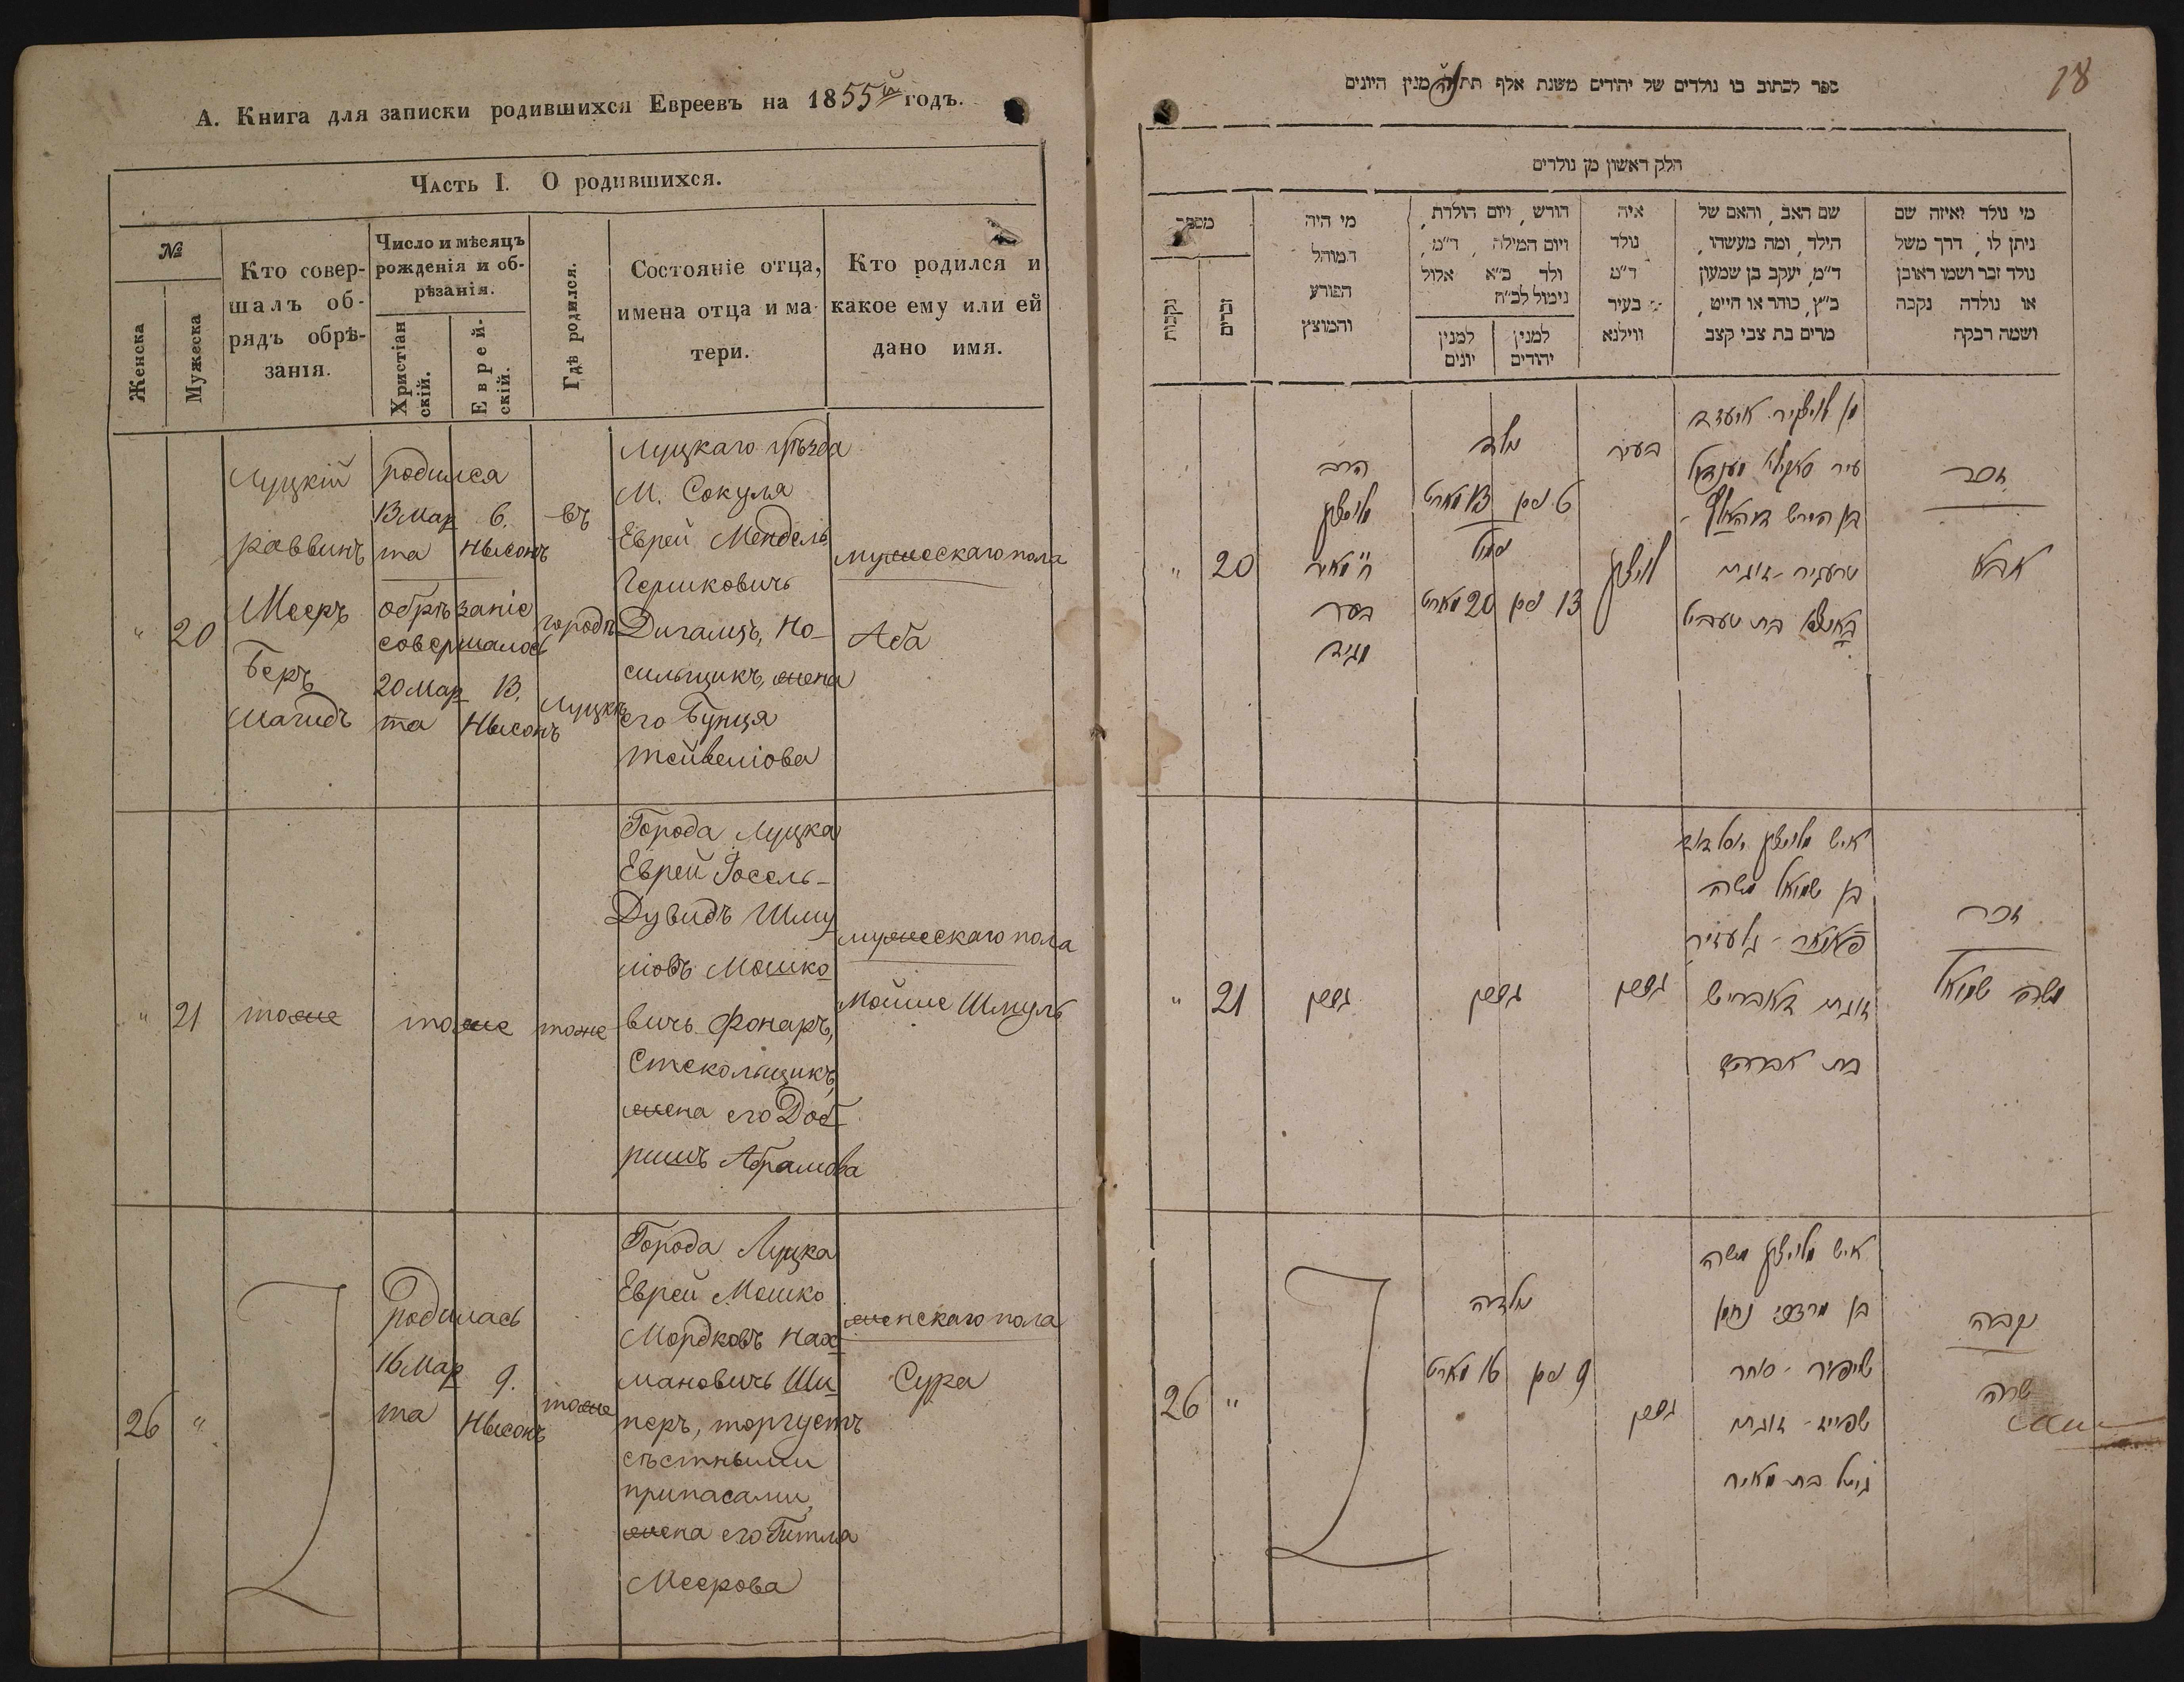 А. Книга для записки родившихся Евреевъ на 1855й годъ.
Часть I. О родившихся.
№
Женска
Мужеска
Кто совер-
шалъ об-
рядъ обрѣ-
занія.
Число и мѣсяцъ
рожденія и об-
рѣзанія.
Христіан
скій.
Еврей-
скій.
Гдѣ родился.
Состояніе отца,
имена отца и ма-
тери.
Кто родился и
какое ему или ей
дано имя.
"
20
Луцкій
раввинъ
Мееръ
Беръ
Магидъ
родился
13 Мар 6.
та Нысонъ
обрѣзаніе
совершалось
20 Мар 13.
та Нысонъ
въ
городѣ
Луцкѣ
Луцкаго уѣзда
М. Сокуля
Еврей Мендель
Гершковичъ
но-
сильщикъ, жена
его Бунця
Тейвеліова
мужескаго пола
Аба
"
21
тоже
тоже
тоже
Города Луцка
Еврей Іосель-
Дувидъ Шму
ліовъ Мошко
вичъ Фонаръ,
Стекольщикъ,
жена его Доб
ришъ Абрамова
мужескаго пола
Мойше Шмуль
26
"
Родилась
16 Мар 9.
та Нысонъ
тоже
Города Луцка
Еврей Мошко
Мордковъ Нах
мановичъ Ши
перъ, торгуетъ
състными
припасами,
жена его Гитля
Меерова
женскаго пола
Сура
18
ספר לכתוב בו נולדים של יהודים משנת אלף תת מנין היונים
חלק ראשון מן נולדים
מספר
נקבות
זכרים
מי היה
המוהל
הפורע
והמוצץ
חודש, ויום הולדת,
ויום המילה, ד״מ,
ולד כ״א אלול
נימול לכ״ח
למנין
יונים
למנין
יהודים
איה
נולד
ד״מ
בעיר
ווילנא
שם האב, והאם של
הילד, ומה מעשהו,
ד״מ, יעקב בן שמעון
כ״ץ, סוחר או חייט,
מרים בת צבי קצב
מי נולד ואיזה שם
ניתן לו, דרך משל
נולד זכר ושמו ראובן
או נולדה נקבה
ושמה רבקה
"
20
הרב
מלויצק
מאיר
בער
מגיד
נולד
6 ניסן 13 מארט
נמול
13 ניסן 20 מארט
בעיר
לויצק
בן הירש
טרעגיר זוגתו
זכר
אבא
"
21
איש מלויצק יוסל דוד
בן שמואל משה
פאנאר גלעזיר
זוגתו דאבריש
בת אברהם
זכר
משה שמואל
26
"
נולדה
9 ניסן 16 מארט
איש מלויצק משה
בן מרדכי נחמן
שיפער סוחר
זוגתו
גיטל בת מאיר
נקבה
שרה